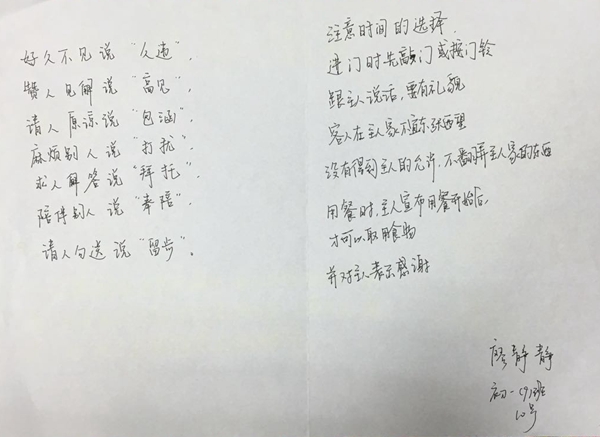 好久不见说“久违”.
赞人见解说“高见”.
请人原谅说“包涵”.
麻烦别人说“打扰”.
求人解答说“拜托”.
陪伴别人说“奉陪”.
请人勿送说“留步”.
注意时间的选择.
进门时先敲门或按门铃
跟主人说话,要有礼貌
客人在主人家不宜东张西望
没有得到主人的允许,不翻弄主人家的东西
用餐时,主人宣布用餐开始后,
才可以取用食物
并对主人表示感谢
廖静静
初一(9)班
10号